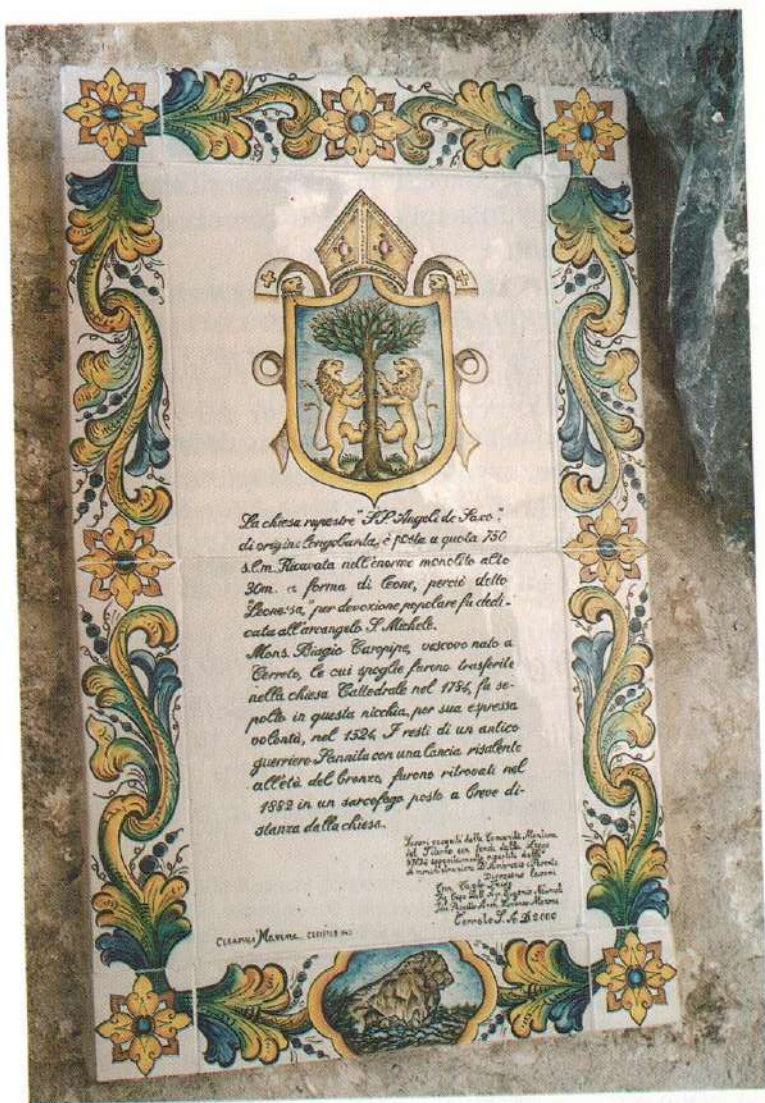 La chiesa rupestre "S.P. Angeli de Saxo",
di origine longobarda, è posta a quota 750
s.l.m. Ricavata nell'enorme monolito alto
30m. a forma di leone, perciò detto
"Leonessa," per devozione popolare fu dedi-
cata all'arcangelo S. Michele.
Mons. Biagio Caropipe, vescovo nato a
Cerreto, le cui spoglie furono trasferite
nella chiesa Cattedrale nel 1784, fu se-
polto in questa nicchia, per sua espressa
volontà, nel 1524. I resti di un antico
guerriero Sannita con una lancia risalente
all'età del bronzo, furono ritrovati nel
1882 in un sarcofago posto a breve di-
stanza dalla chiesa.
Lavori eseguiti dalla Comunità Montana
del Titerno con fondi della Legge
amministrazione D'Amico
Direzione lavori
Cerreto S. A.D. 2000
Marina